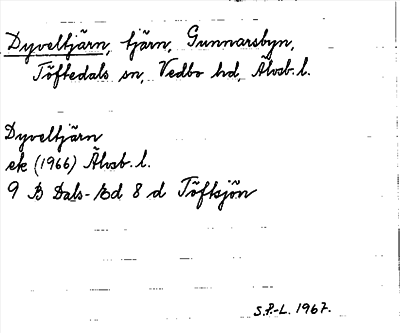 Dyveltjärn, tjärn, Gunnarsbyn,
Töftedals sn, Vedbo hd, Älvsb. l.
Dyveltjärn
ek (1966) Älvsb. l.
9 B Dals-Ed 8 d Töftsjön
S.P.-L. 1967.